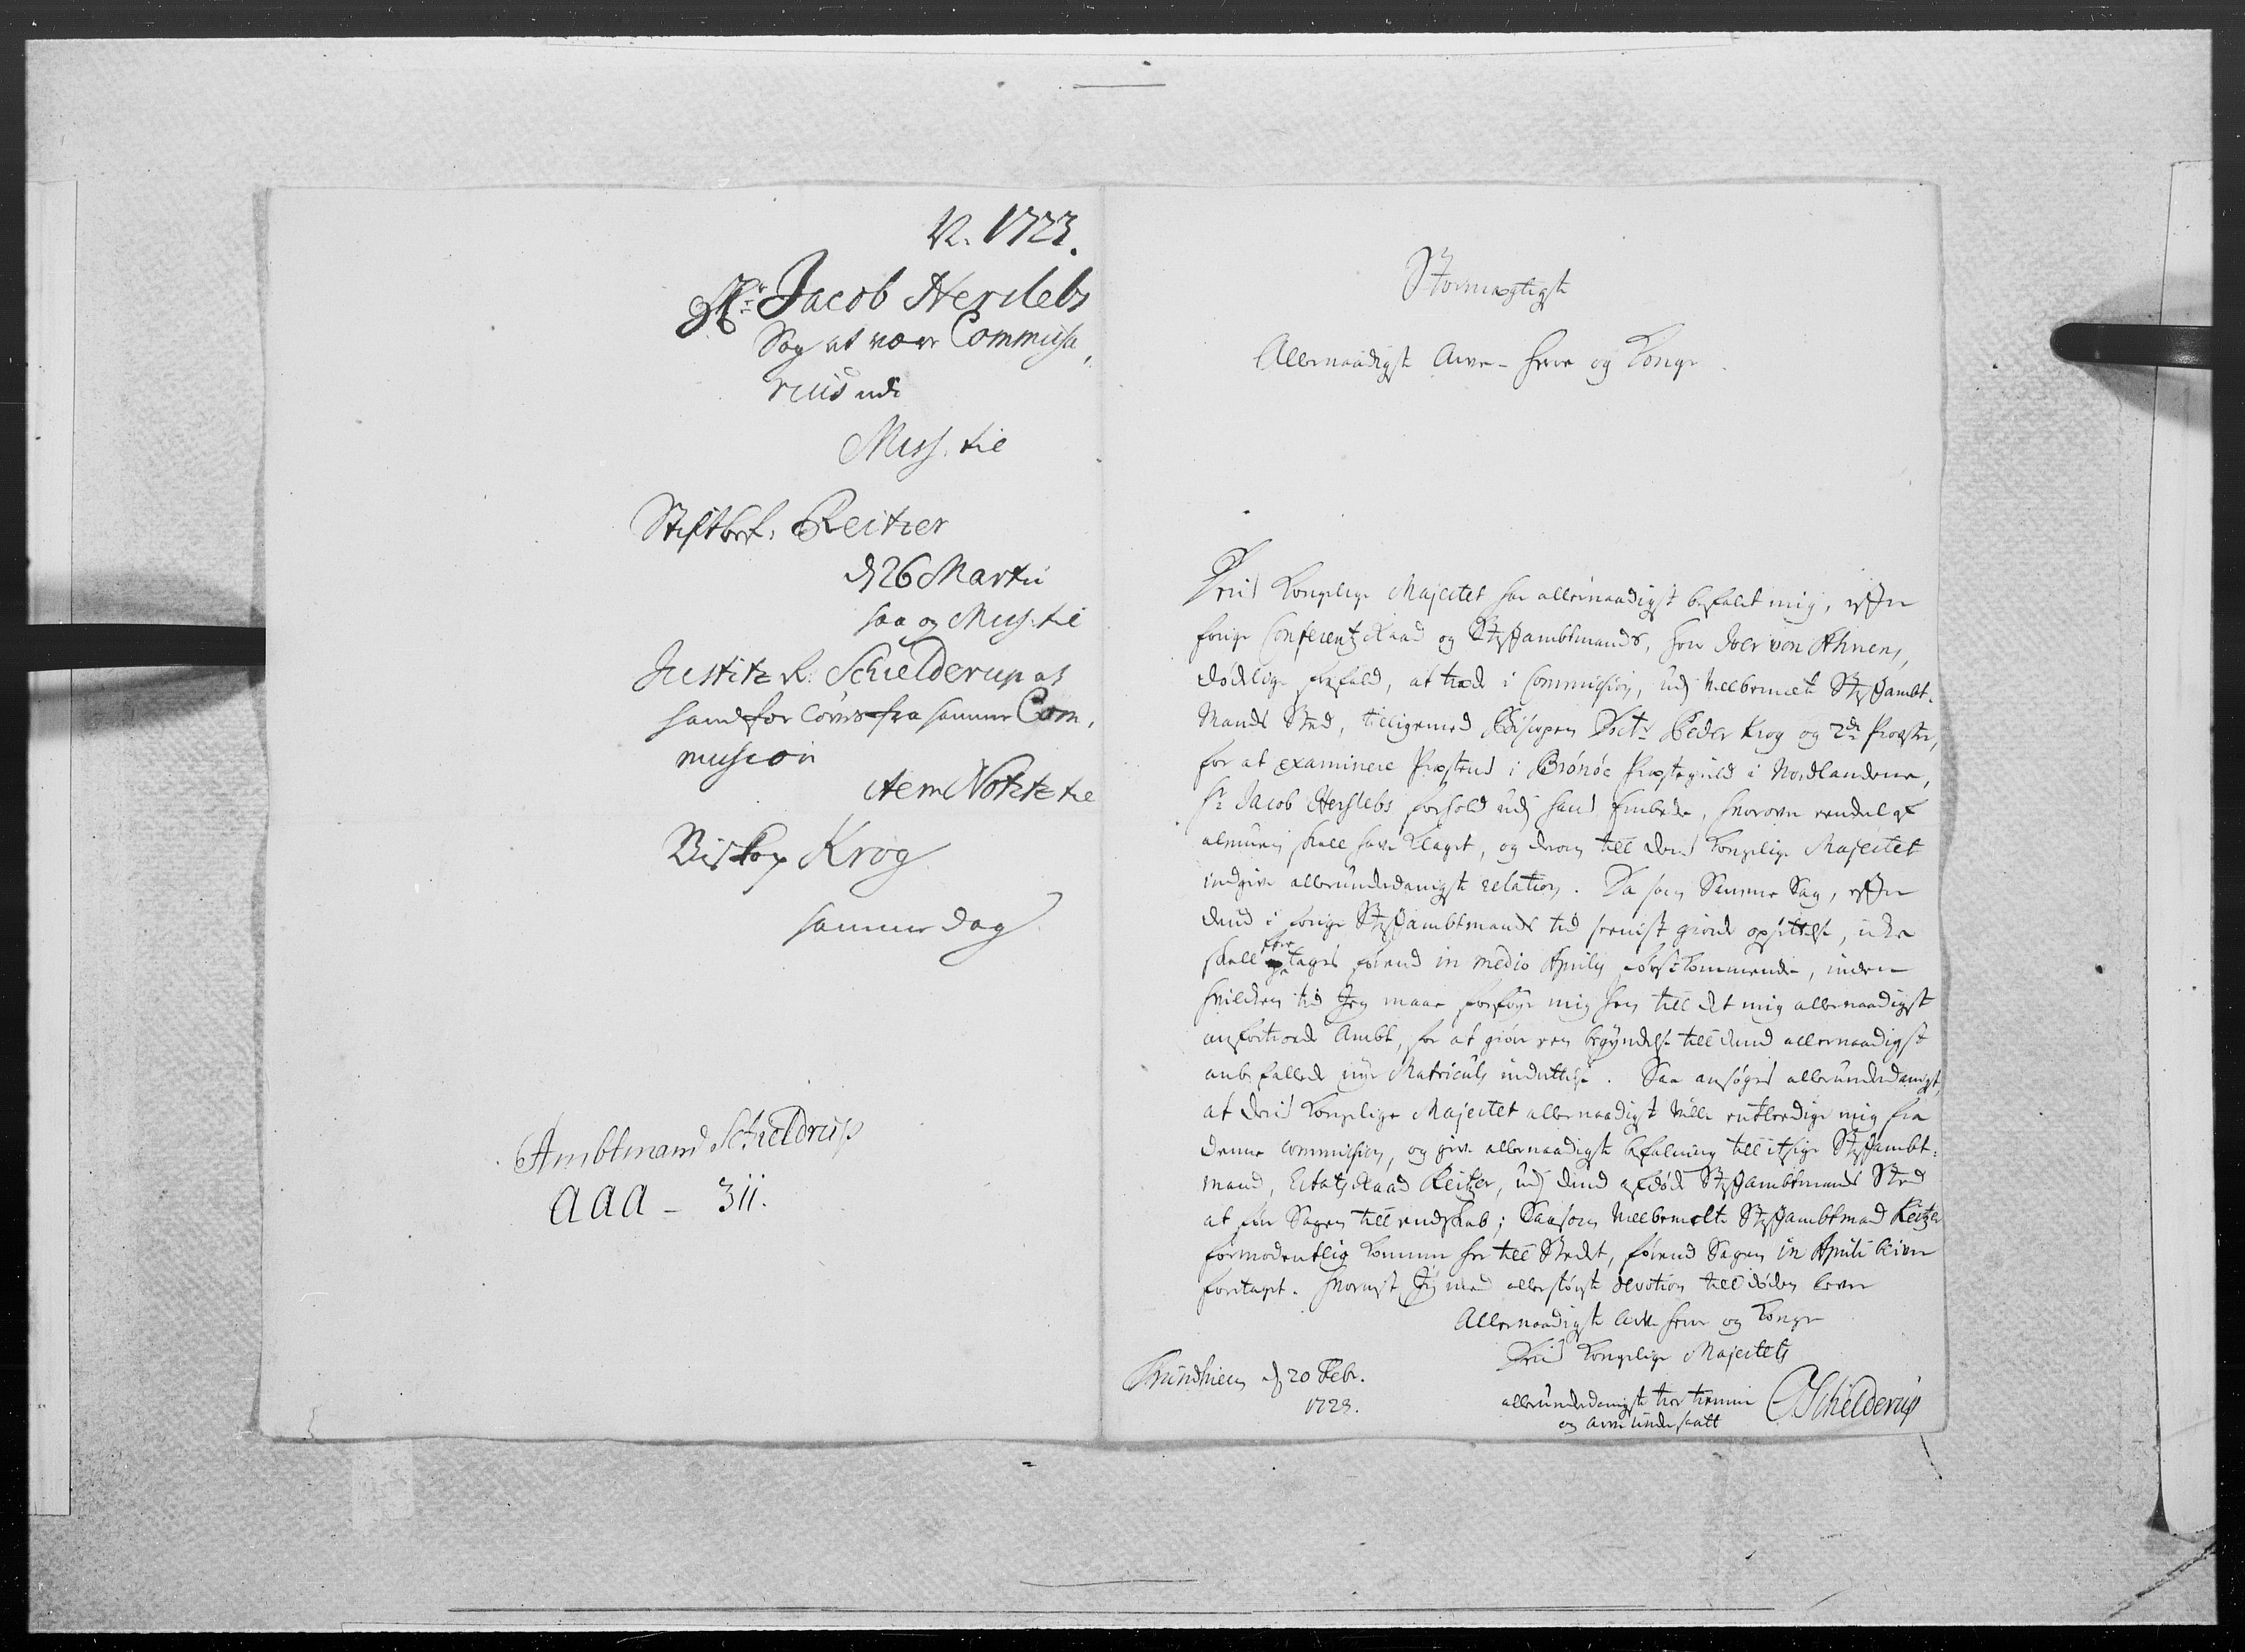 N. 1723.
Hr: Jacob Herslebs
Sag at være Commissa,
rius udi
Miss. til
Stiftbef: Reitzer
d 26 Martii
saa og Miss: til
Justitz R: Schielderup at
hand forløvis fra samme Com,
mission
item Notitz til
Biskop Krog
samme dag
Ambtmand Schieldrup
aaa - 311.
Stormægtigste
Allernaadigste Arve-Herre og Konge
Deris Kongelige Majestet har allernaadigst befalet mig, efter
forige ConferentzRaad og Stiftambtmands, Herr Iver von Ahnens,
dødelige frafald, at træde i Commission, udj Velbemelte Stiftambt-
Mands Sted, tilligemed Bispen Doctr Peder Krog og 2de Provster,
for at examinere Præstens i Brönöe Præstegield i Nordlandene,
Hr Jacob Herslebs forhold udj hans Embede, hvorover endel af
almuen skall have klaget, og derom till Deris Kongelige Majestet
indgive allerunderdanigst relation. Da som Samme Sag, efter
dend i forige Stiftambtmands tid seenist giorde opsettelse, icke
skall foretages førend in medio Aprilis førstkommende, inden
hvilken tid Jeg maae forføye mig hen till det mig allernaadigst
anfortroede Ambt, for at giøre een begyndelse till dend allernaadigst
anbefallede nye Matriculs indrettelse. Saa ansøges allerunderdanigst,
at Deris Kongelige Majestet allernaadigst ville entledige mig fra
denne commission, og give allernaadigst befalning till itzige Stiftambt-
mand, EtatzRaad Reitzer, udj dend afdøde Stiftambtmands Sted
at føre Sagen till endskab; Saasom Velbemelte Stiftambtmand Reitzer
formodentlig kommer her till Stedet, førend Sagen in Aprili bliver
foretaget. Hvornest Jeg med allerstørste devotion till døden lever
Allernaadigste Arve Herre og Konge
Deris Kongelige Majestets
Trundhiem d 20 Febr.
1723.
allerunderdanigste troe tienner
og arve undersaatt
Schielderup